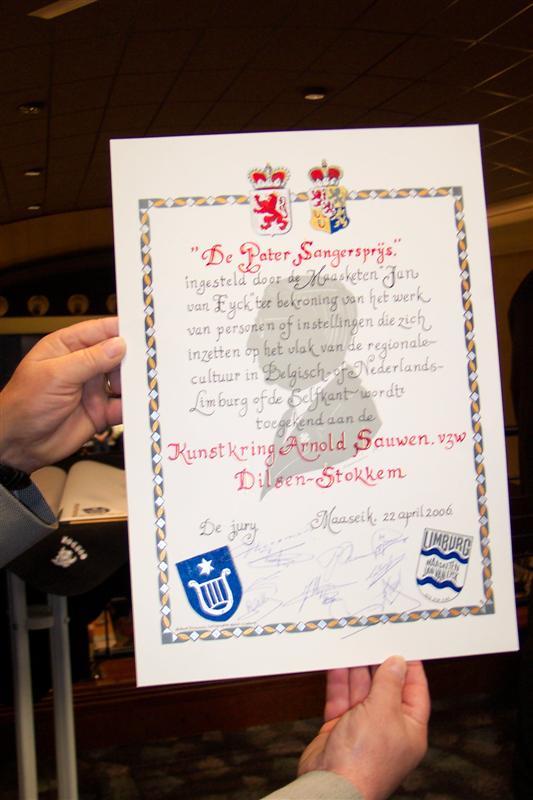 "De Pater Sangersprijs."
ingesteld door de Maasketen "Jan
van Eyck" ter bekroning van het werk
van personen of instellingen die zich
inzetten op het vlak van de regionale-
cultuur in Belgisch- of Nederlands-
Limburg of de Selfkant wordt
toegekend aan de
Kunstkring Arnold Sauwen. vzw
Dilsen-Stokkem
De jury. Maaseik, 22 april 2006.
LIMBURG
MAASKETEN
JAN VAN EYCK